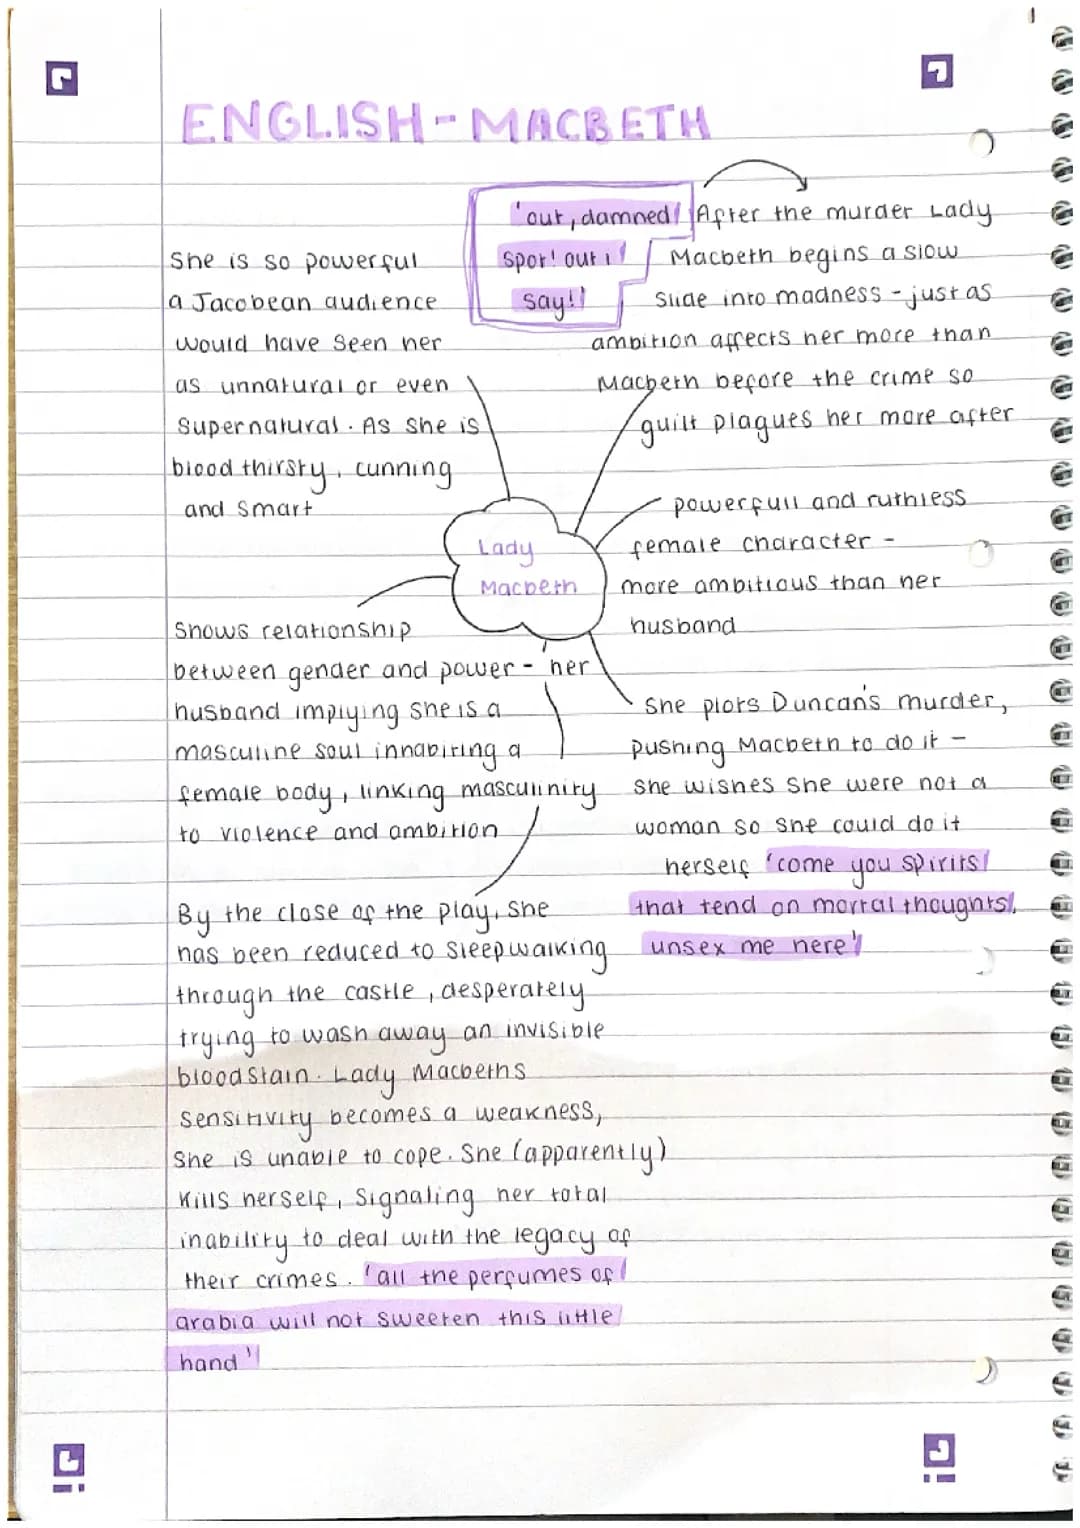 ENGLISH - MACBETH
'out, damned
spot! out i
say!'
After the murder Lady
Macbeth begins a slow
slide into madness - just as
ambition affects her more than
Macbeth before the crime so
guilt plagues her more after
She is so powerful
a Jacobean audience
would have seen her
as unnatural or even
supernatural. As she is
blood thirsty, cunning
and smart
Lady
Macbeth
powerfull and ruthless
female character -
more ambitious than her
husband
Shows relationship
between gender and power - her
husband implying she is a
masculine soul innabiting a
female body, linking masculinity
to violence and ambition
She plots Duncan's murder,
pushing Macbeth to do it -
she wishes she were not a
woman so she could do it
herself 'come you spirits
that tend on mortal thoughts,
unsex me here'
By the close of the play, she
has been reduced to sleepwalking
through the castle, desperately
trying to wash away an invisible
bloodstain. Lady Macbeths
sensitivity becomes a weakness,
she is unable to cope. She (apparently)
kills herself, signaling her total
inability to deal with the legacy of
their crimes. 'all the perfumes of
arabia will not sweeten this little
hand'